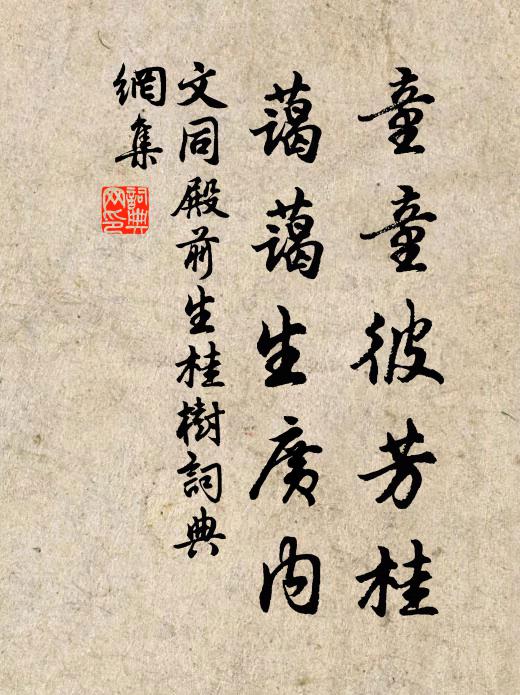 童童彼芳桂
藹藹生廣內
文同殿前生桂樹詞典
網集
詞典網印